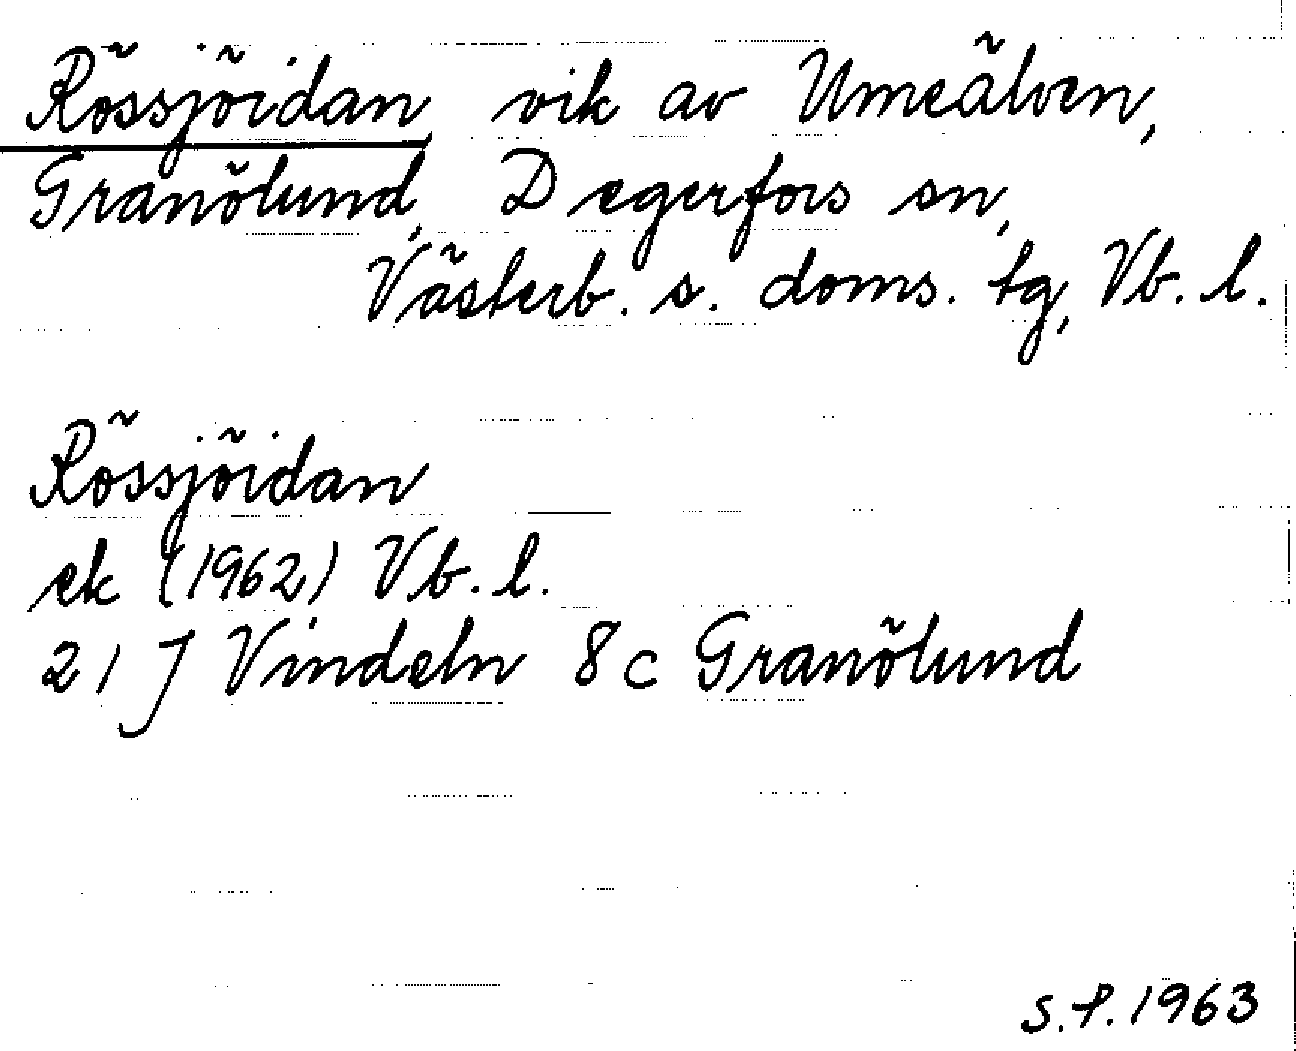 Rössjöidan, vik av Umeälven,
Granölund, Degerfors sn,
Västerb. s. doms. tg, Vb. l.
Rössjöidan
ek (1962) Vb. l.
21 J Vindeln 8c Granölund
S.P. 1963